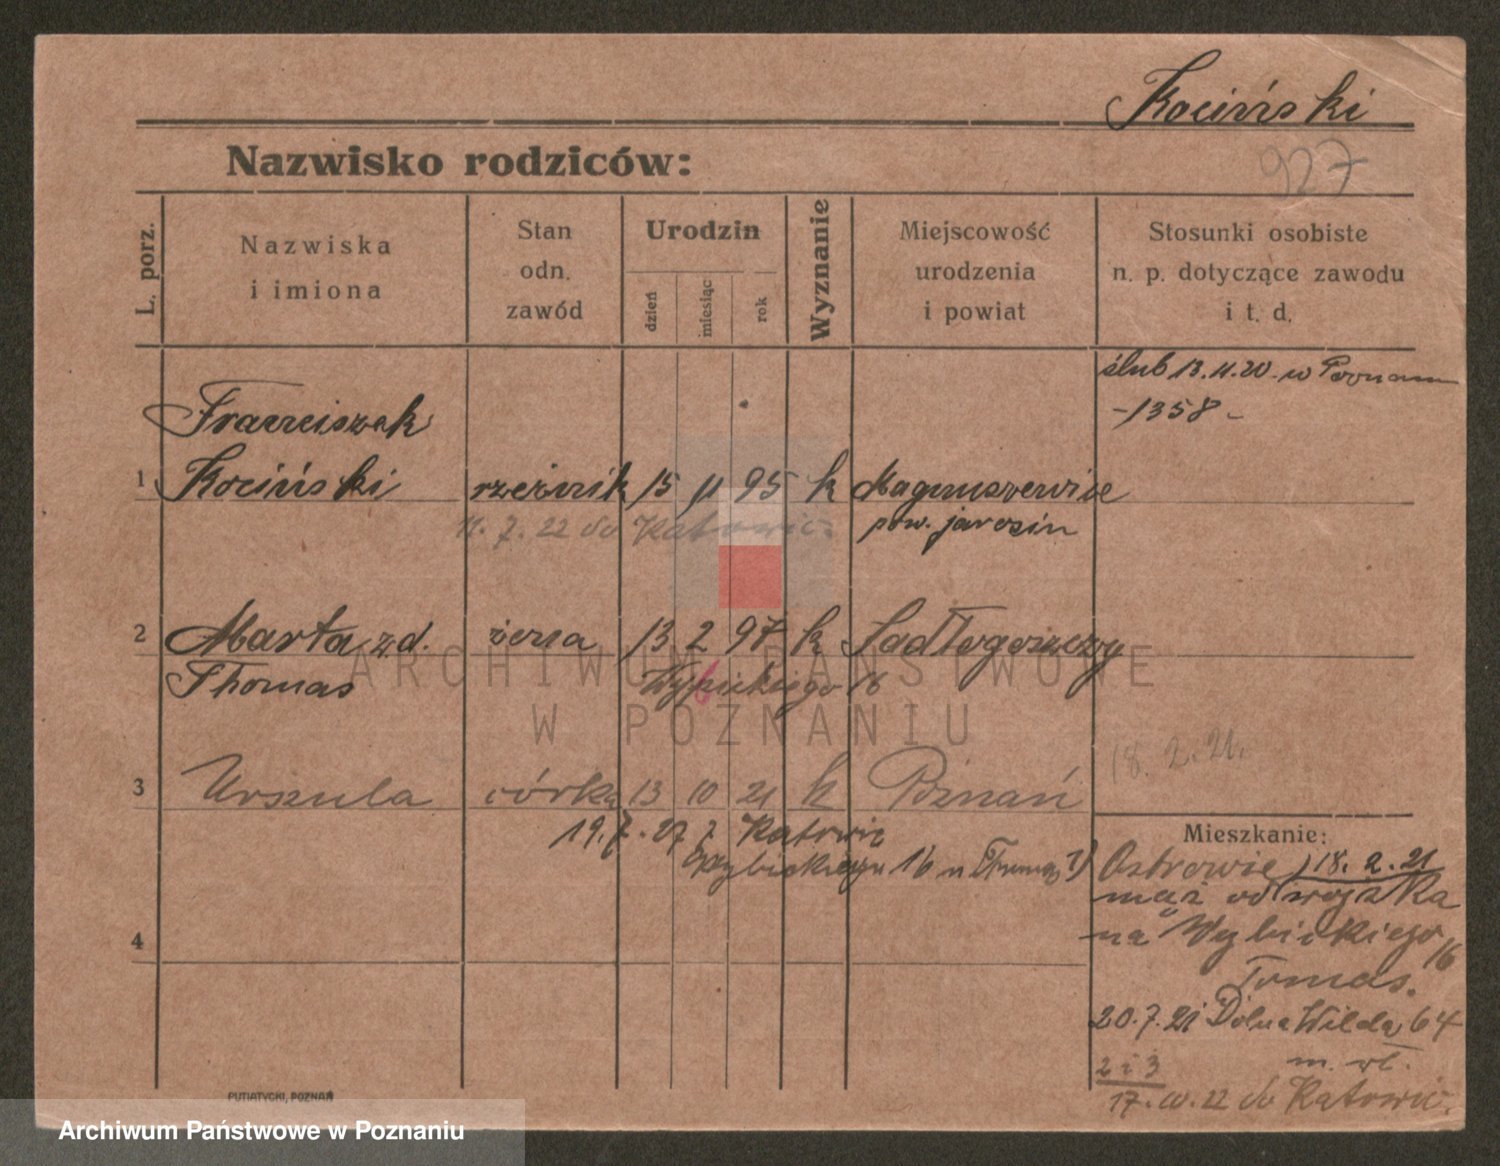 Kociński
Nazwisko rodziców:
927
L. porz.
Nazwiska
i imiona
Stan
odn.
zawód
Urodzin
dzień
miesiąc
rok
Wyznanie
Miejscowość
urodzenia
i powiat
Stosunki osobiste
n. p. dotyczące zawodu
i t. d.
ślub 13.4.20 w Poznaniu
-1358-
Franciszek
1 Kociński rzeźnik 15 11 95 k Magnuszewice
11. 7. 22 do Katowic.
pow. jarosin
2 Marta z.d. żona 13 2 97 k
Thomas
Wybickiego 16
ARCHIWUM PAŃSTWOWE
W POZNANIU
18. 2. 21.
3 Urszula córka 13 10 21 k Poznań
19.7.27 z Katowic
Wybickiego 16 u
4
Mieszkanie:
Ostrowie 18. 2. 21
mąż od wojska
na Wybickiego 16
Tomas.
20.7.21 Dolna Wilda 64
m. wł.
2 i 3
17. 10. 22 do Katowic.
PUTIATYCKI, POZNAŃ
Archiwum Państwowe w Poznaniu